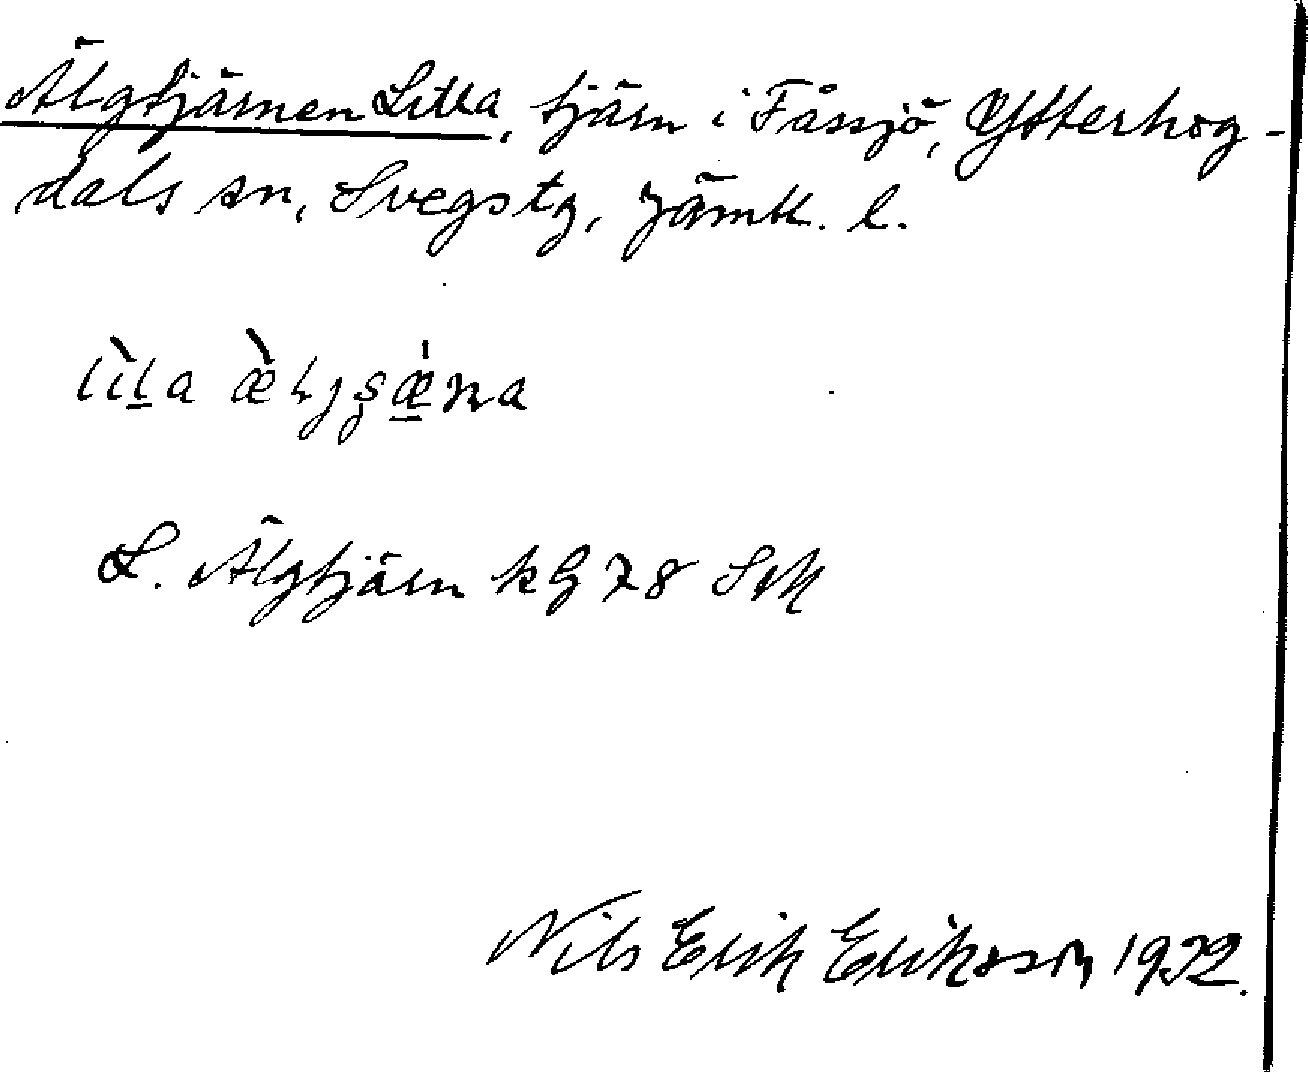 Älgtjärnen Litla, tjärn i Fåssjö, Ytterhog-
dals sn, Svegs tg, Jämtl. l.
L. Älgtjärn kG 78 SM
Nils Erik Eriksson 1932.